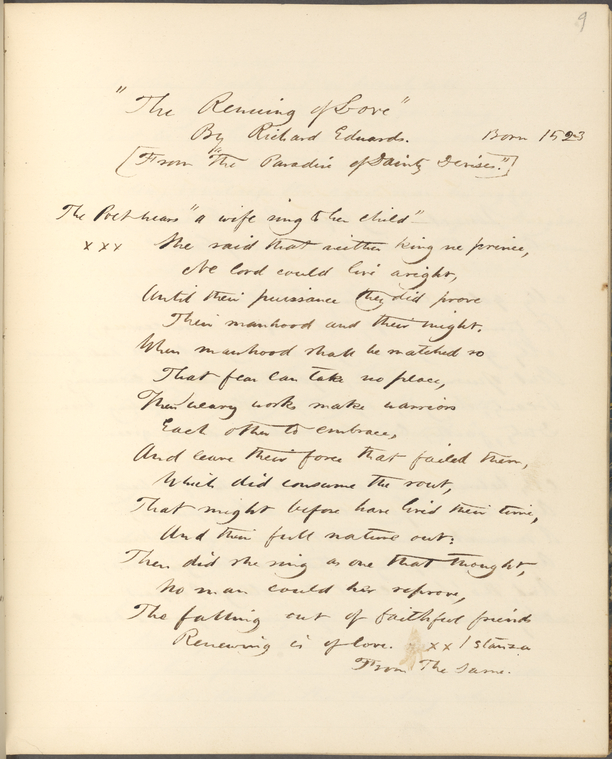 9
"The Renewing of Love"
By Richard Edwards. Born 1523
[From "The Paradise of Dainty Devises."]
The Poet hears "a wife sing to her child"
x x x She said that neither king ne prince,
Ne lord could live aright,
Until their puissance they did prove
Their manhood and their might.
When manhood shall be matched so
That fear can take no place,
Then weary works make warriors
Each other to embrace,
And leave their force that failed them,
Which did consume the rout,
That might before have lived their time,
And their full nature out:
Then did she sing as one that thought,
No man could her reprove,
The falling out of faithful friends
Renewing is of love. x x 1 stanza
From The Same.